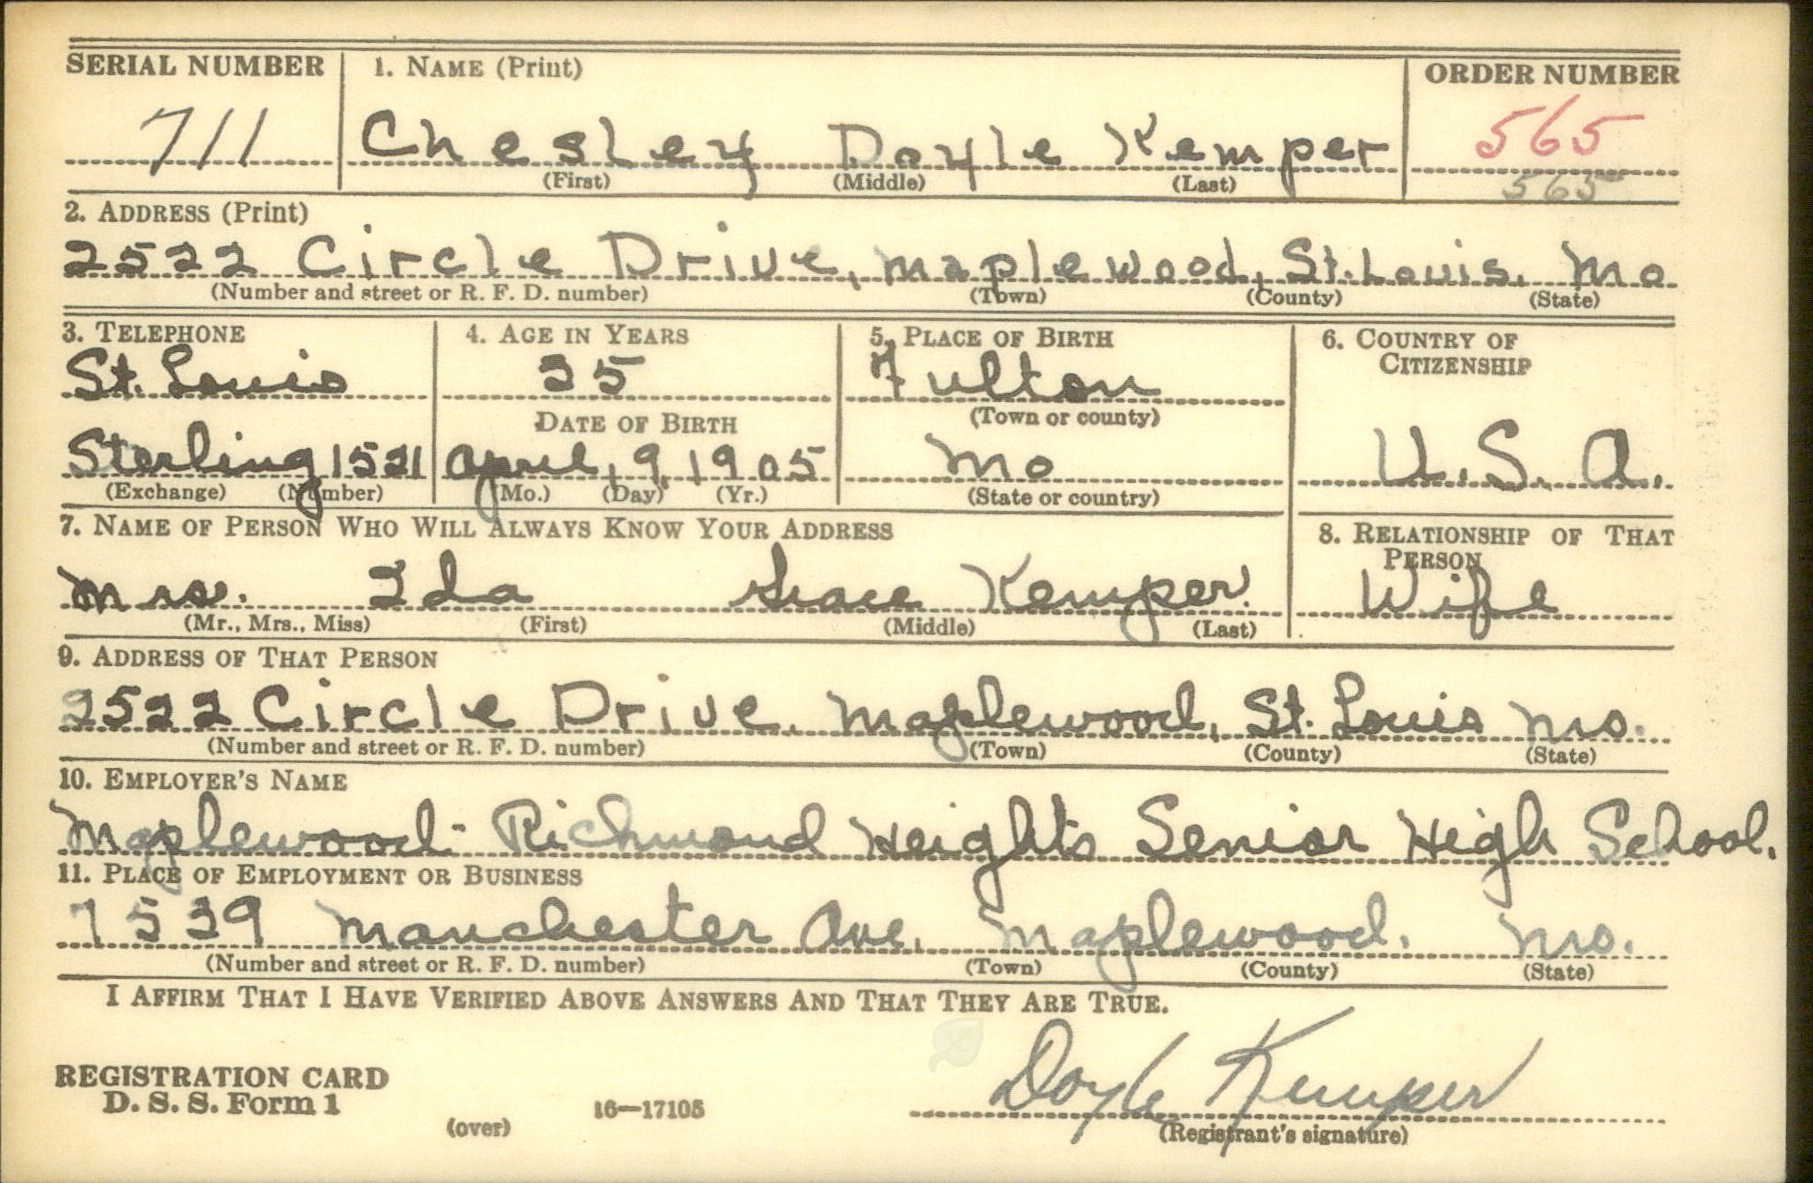 SERIAL NUMBER 1. NAME (Print) ORDER NUMBER
711 Chesley Doyle Kemper 565
(First) (Middle) (Last) 565
2. ADDRESS (Print)
2522 Circle Drive, Maplewood, St. Louis, Mo
(Number and street or R. F. D. number) (Town) (County) (State)
3. TELEPHONE 4. AGE IN YEARS 5. PLACE OF BIRTH 6. COUNTRY OF
CITIZENSHIP
St. Louis 35 Fulton
DATE OF BIRTH (Town or county)
Sterling 1521 April, 9, 1905 Mo U. S. A.
(Exchange) (Number) (Mo.) (Day) (Yr.) (State or country)
7. NAME OF PERSON WHO WILL ALWAYS KNOW YOUR ADDRESS 8. RELATIONSHIP OF THAT
PERSON
Mrs. Ida Grace Kemper. Wife
(Mr., Mrs., Miss) (First) (Middle) (Last)
9. ADDRESS OF THAT PERSON
2522 Circle Drive, Maplewood, St. Louis Mo.
(Number and street or R. F. D. number) (Town) (County) (State)
10. EMPLOYER'S NAME
Maplewood-Richmond Heights Senior High School.
11. PLACE OF EMPLOYMENT OR BUSINESS
7539 Manchester Ave, Maplewood, Mo.
(Number and street or R. F. D. number) (Town) (County) (State)
I AFFIRM THAT I HAVE VERIFIED ABOVE ANSWERS AND THAT THEY ARE TRUE.
REGISTRATION CARD
D. S. S. Form 1
(over) 16—17105 Doyle Kemper
(Registrant's signature)